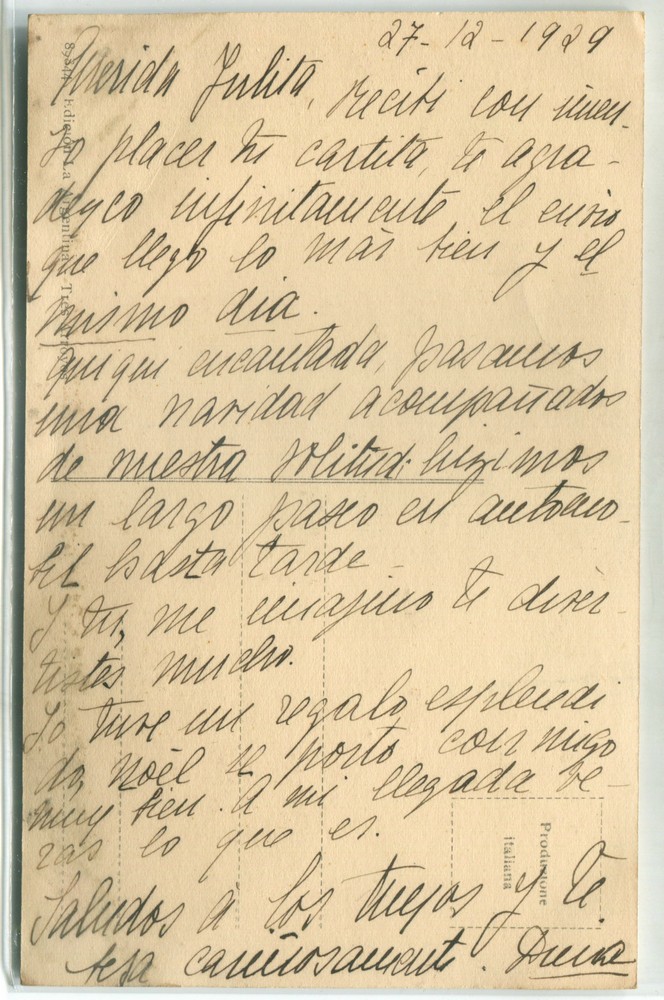 27-12-1929
Querida Julita, recibi con inmen-
so placer tu cartita, te agra-
desco infinitamente el envio
que llego lo más bien y el
mismo dia.
quiqui encantada, pasamos
una navidad acompañados
de nuestra solitud; hizimos
un largo paseo en automo-
bil hasta tarde -
Y tu, me imagino te diver-
tistes mucho.
Yo tuve un regalo esplendi
do, Noël se portó conmigo
muy bien. A mi llegada ve-
ras lo que es.
Saludos a los tuyos y te
besa cariñosamente.
Edición La Argentina
Produzione
italiana